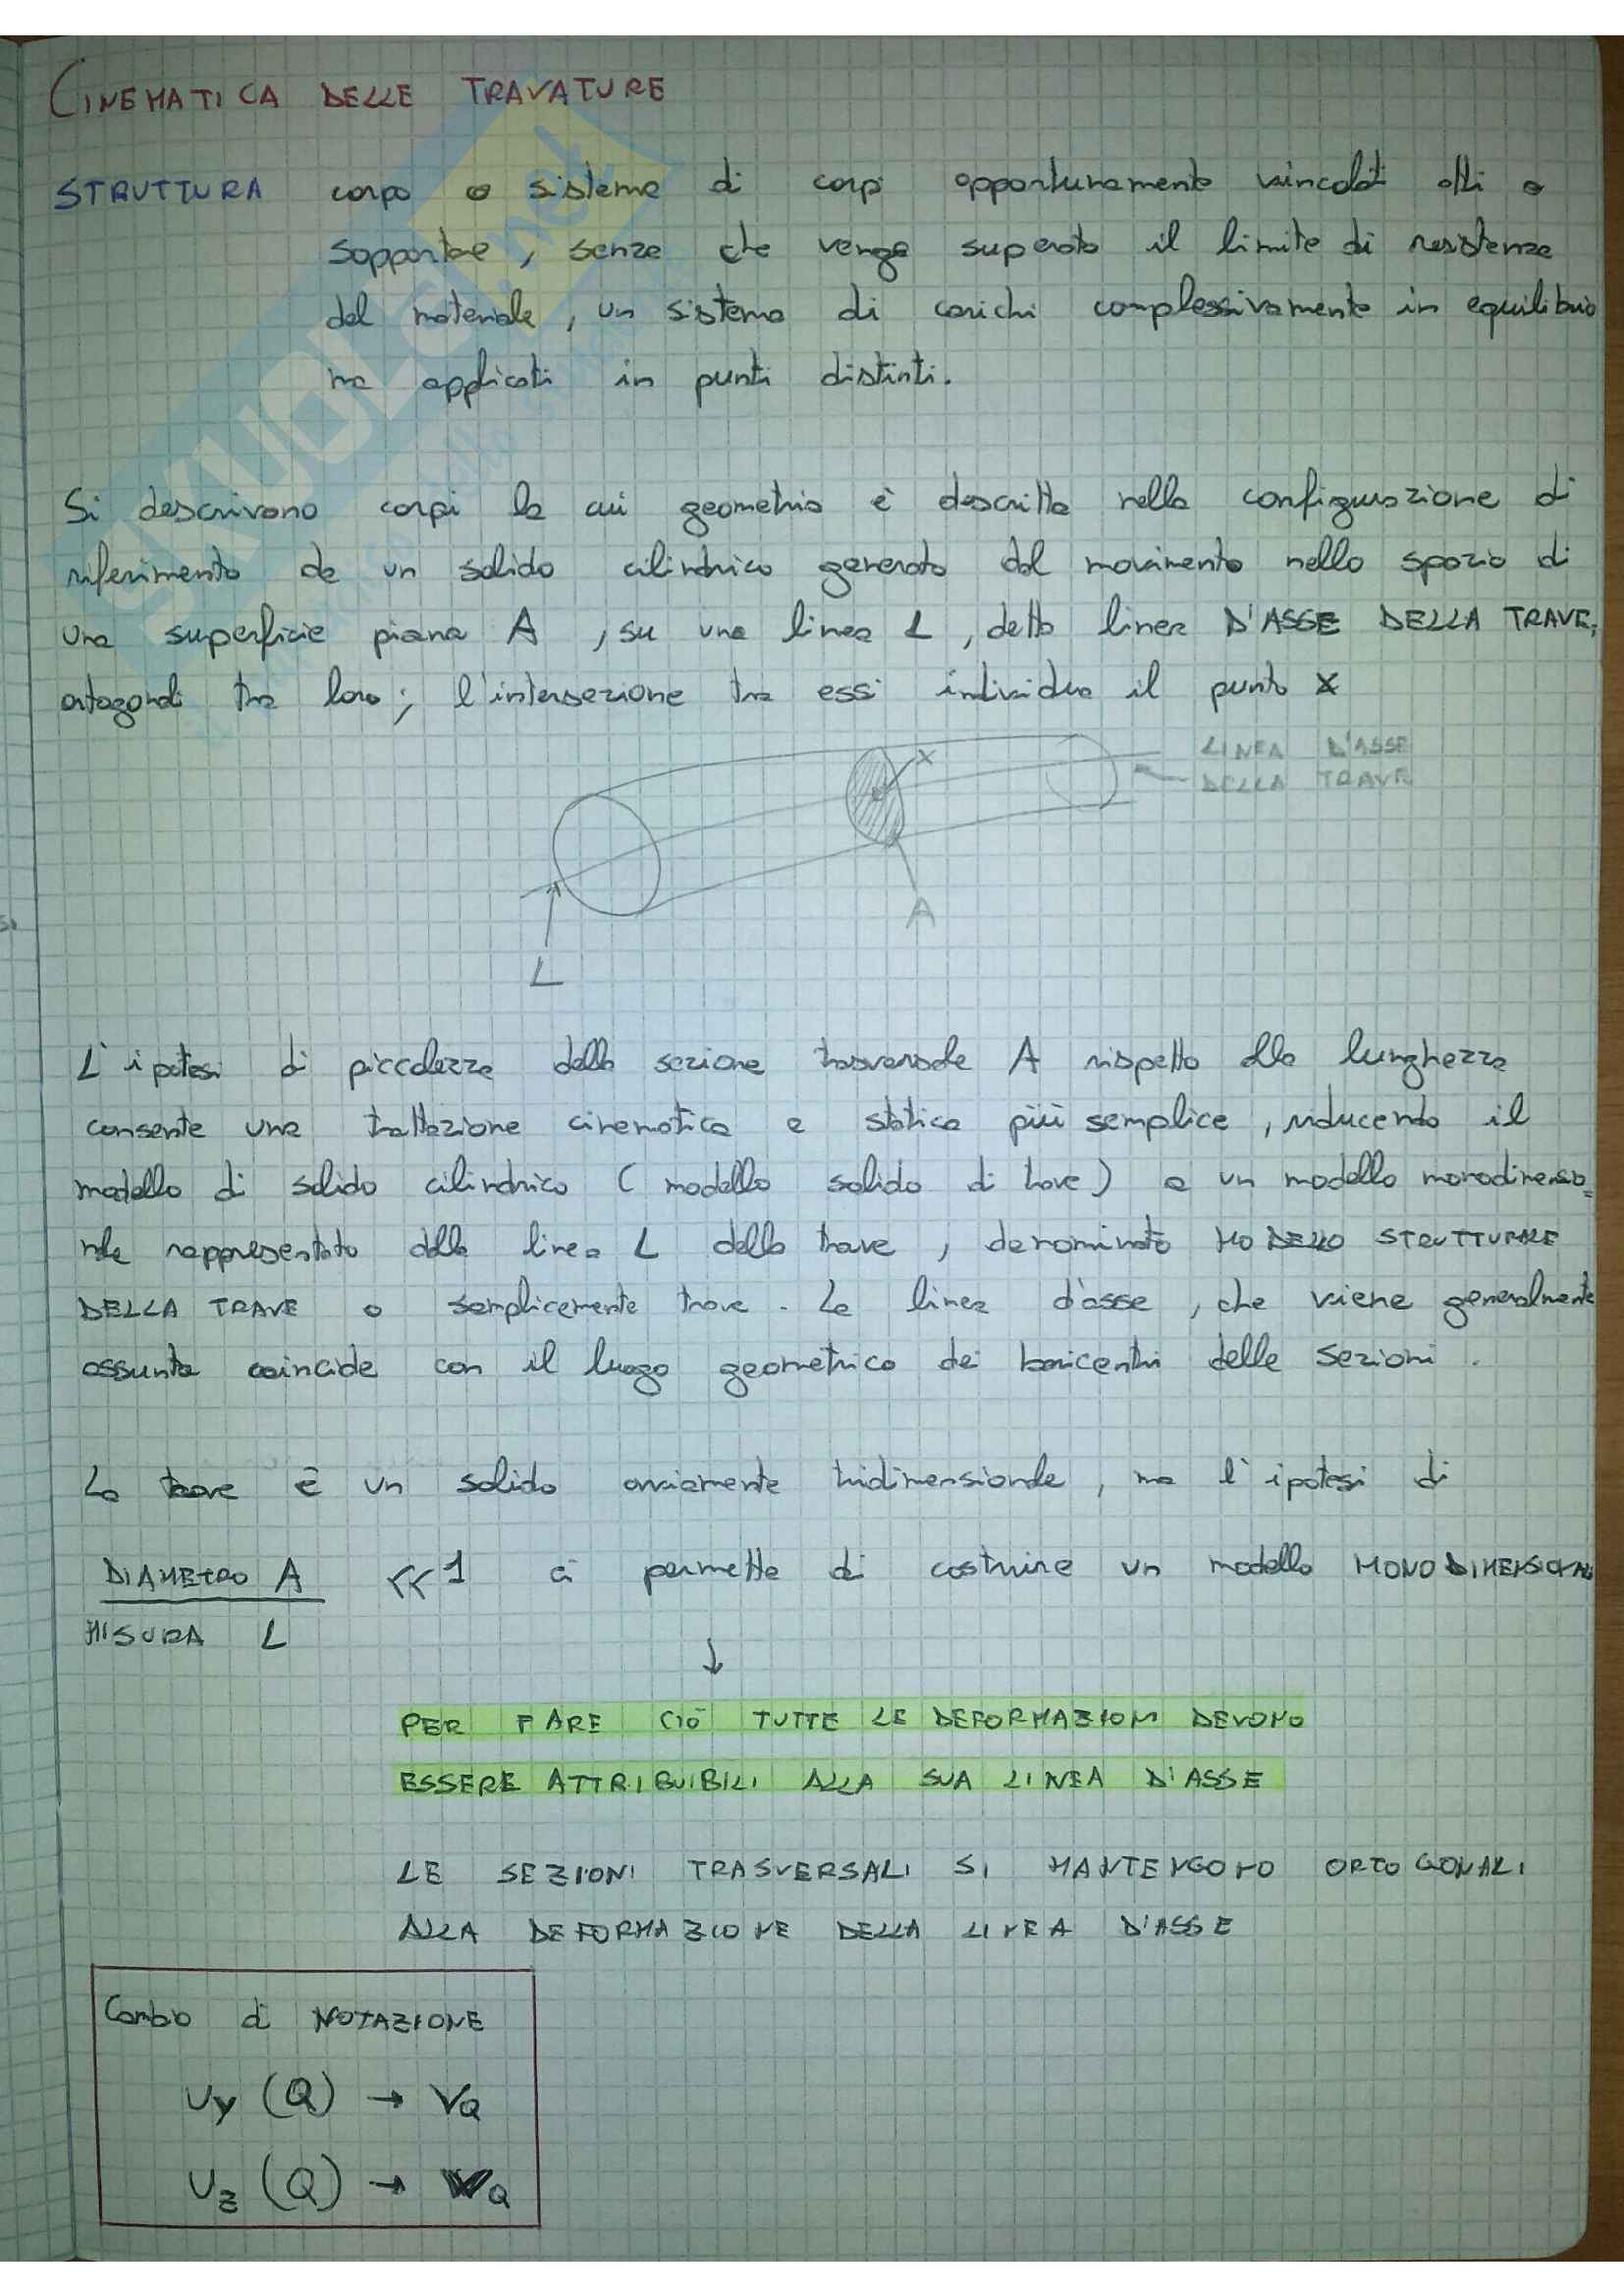 CINEMATICA DELLE TRAVATURE
STRUTTURA corpo o sistema di corpi opportunamente vincolati atti a
sopportare, senza che venga superato il limite di resistenza
del materiale, un sistema di carichi complessivamente in equilibrio
ma applicati in punti distinti.
Si descrivono corpi la cui geometria è descritta nella configurazione di
riferimento da un solido cilindrico generato dal movimento nello spazio di
una superficie piana A, su una linea L, detta linea D'ASSE DELLA TRAVE;
ortogonali tra loro; l'intersezione tra essi individua il punto X
X
LINEA D'ASSE
DELLA TRAVE
A
L
L'ipotesi di piccolezza della sezione trasversale A rispetto alla lunghezza
consente una trattazione cinematica e statica più semplice, riducendo il
modello di solido cilindrico (modello solido di trave) a un modello monodimensio=
nale rappresentato dalla linea L della trave, denominato MODELLO STRUTTURALE
DELLA TRAVE o semplicemente trave. La linea d'asse, che viene generalmente
assunta coincide con il luogo geometrico dei baricentri delle sezioni.
La trave è un solido ovviamente tridimensionale, ma l'ipotesi di
DIAMETRO A <<1 ci permette di costruire un modello MONODIMENSIONAL
MISURA L
↓
PER FARE CIÒ TUTTE LE DEFORMAZIONI DEVONO
ESSERE ATTRIBUIBILI ALLA SUA LINEA D'ASSE
LE SEZIONI TRASVERSALI SI MANTENGONO ORTOGONALI
ALLA DEFORMAZIONE DELLA LINEA D'ASSE
Cambio di NOTAZIONE
Uy (Q) → VQ
Uz (Q) → WQ
SKUOLA.net